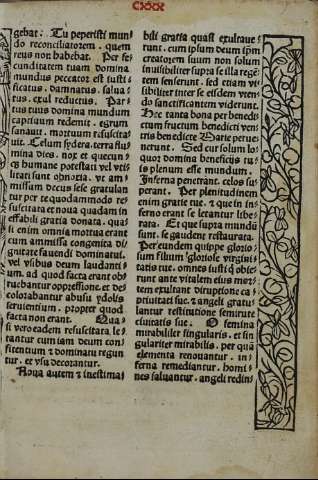 CXXX
gebat. Tu peperisti mun⸗
do reconciliatorem. quem
reus non habebat. Per fe⸗
cunditatem tuam domina
mundus peccator est iusti⸗
ficatus. damnatus. salua⸗
tus. exul reductus. Par⸗
tus tuus domina mundum
captiuum redemit. egrum
sanauit. mortuum resuscita
uit. Celum sydera. terra flu
mina dies. nox et quecun⸗
humane potestati vel vti
litati sunt obnoxia. ve am⸗
missum decus sese gratulan
tur per te quodammodo res
suscitata et noua quadam in
effabili gratia donata. qua⸗
si enim omnia mortua erant
cum ammissa congenita di⸗
gnitate fauendi dominatui.
vel vsibus deum laudanti
um. ad quod facta erant ob⸗
ruebantur oppressione. et de⸗
colorabantur abusu ydolis
seruientium. propter quod
facta non erant. Qua⸗
si vero eadem resuscitata le⸗
tantur cum iam deum con⸗
fitentium et dominatu regun
tur. et vsu decorantur.
Noua autem et inestima⸗
bili gratia quasi exultaue⸗
runt. cum ipsum deum ipsum
creatorem suum non solum
inuisibiliter supra se illa rege⸗
tem senserunt. sed etiam vi⸗
sibiliter inter se eisdem vten⸗
do sanctificantem viderunt.
Hec tanta bona per benedi⸗
ctum fructum benedicti ven⸗
tris benedicte Marie perue
nerunt. Sed cur solum lo⸗
quor domina beneficijs tu⸗
is plenum esse mundum.
Inferna penetrant. celos su⸗
perant. Per plenitudinem
enim gratie tue. et que in in⸗
ferno erant se letantur libe⸗
rata. Et que supra mundum
sunt. se gaudent restaurata.
Per eundem quippe glorio⸗
sum filium gloriose virgini⸗
tatis tue. omnes iusti qui obie⸗
runt ante vitalem eius mor⸗
tem exultant diruptione ca⸗
ptiuitati sue. et angeli gratu
lantur restitutione semirute
ciuitatis sue. O femina
mirabiliter singularis. et sin
gulariter mirabilis. per quam
elementa renouantur. in⸗
ferna remediantur. homi⸗
nes saluantur. angeli redin⸗